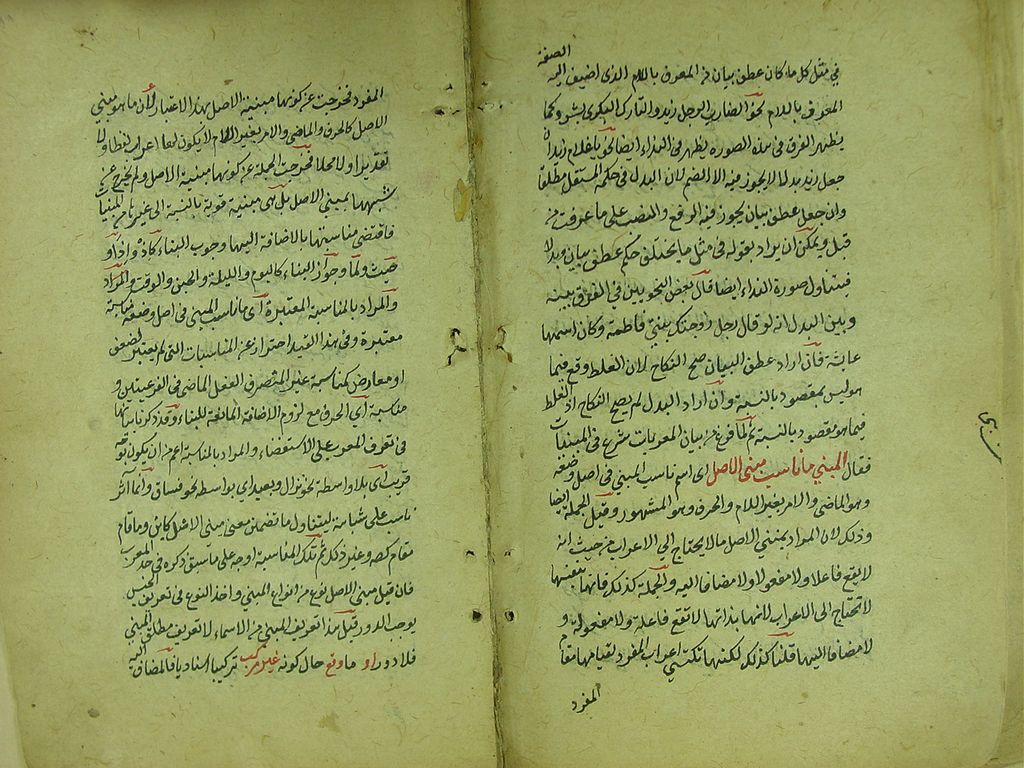 الصفة
في مثل كل ما كان عطف بيان من المعرف باللام الذى اضيف اليه
المعرف باللام نحو الضارب الرجل زيد والتارك البكرى بشر وكما
يظهر الفرق في هذه الصورة يظهر في النداء ايضا نحو يا غلام زيد اذا
جعل زيد بدلا لا يجوز فيه الا الضم لان البدل في حكم المستقل مطلقا
وان جعل عطف بيان يجوز فيه الرفع والنصب على ما عرفت من
قبل ويمكن ان يراد بقوله في مثل ما يختلف حكم عطف بيان وبدلا
فيتناول صورة النداء ايضا قال بعض النحويين في الفرق بينه
وبين البدل انه لو قال رجل زوجتك بنتي فاطمة وكان اسمها
عايشة فان اراد عطف البيان صح النكاح لان الغلط وقع فيما
هو ليس بمقصود بالنسبة وان اراد البدل لم يصح النكاح اذ الغلط
فيما هو مقصود بالنسبة ثم لما فرغ من بيان المعربات شرع في المبنيات
فقال المبني ما ناسب مبنى الاصل اى اسم ناسب المبني في اصل وضعه
وهو الماضي والامر بغير اللام والحرف وهو المشهور وقيل الجملة ايضا
وذلك لان المراد بمبني الاصل ما لا يحتاج الى الاعراب من حيث انه
لا يقع فاعلا ولا مفعولا ولا مضافا اليه والجملة كذلك فانها بنفسها
لا تحتاج الى الاعراب لانها بذاتها لا تقع فاعلة ولا مفعولة و
لا مضافا اليها قلنا كذلك لكنها تكتسي اعراب المفرد لقيامها مقام
المفرد
المفرد فخرجت عن كونها مبنية الاصل بهذا الاعتبار لان ما هو مبني
الاصل كالحرف والماضي والامر بغير اللام لا يكون لها اعراب لفظا ولا
تقديرا ولا محلا فخرجت الجملة عن كونها مبنية الاصل ولم تخرج عن
شبهها بمبنى الاصل بل هى مبنية قوية بالنسبة الى غيرها من المبنيات
فاقتضى مناسبتها بالاضافة اليها وجوب البناء كاذ واذا و
حيث ولما وجواز البناء كاليوم والليلة والحين والوقت
والمراد بالمناسبة المعتبرة اى ما ناسب المبنى في اصل وضعه مناسبة
معتبرة وفي هذا القيد احتراز عن المناسبات التى لم يعتبر لضعف
او معارض كمناسبة غير المنصرف الفعل الماضى في الفرعيتين و
مناسبة اي الحرف مع لزوم الاضافة المانعة للبناء وقد ذكرنا بيانها
في تعريف المعرب على الاستقصاء والمراد بالمناسبة اعم من ان يكون بوجه
قريب اى بلا واسطة نحو نزال وبعيد اى بواسطة نحو فساق وانما آثر
ناسب على شابه ليتناول ما تضمن معنى مبنى الاصل كاين وما قام
مقام كصه وغير ذلك ثم تلك المناسبة اوجه على ما سبق ذكره في المعرب
فان قيل مبنى الاصل نوع من انواع المبنى واخذ النوع في تعريف الجنس
يوجب الدور قيل هذا تعريف المبنى من الاسماء لا تعريف مطلق المبنى
فلا دور او ما وقع حال كونه غير مركب تركيبا اسناديا فالمضاف اليه